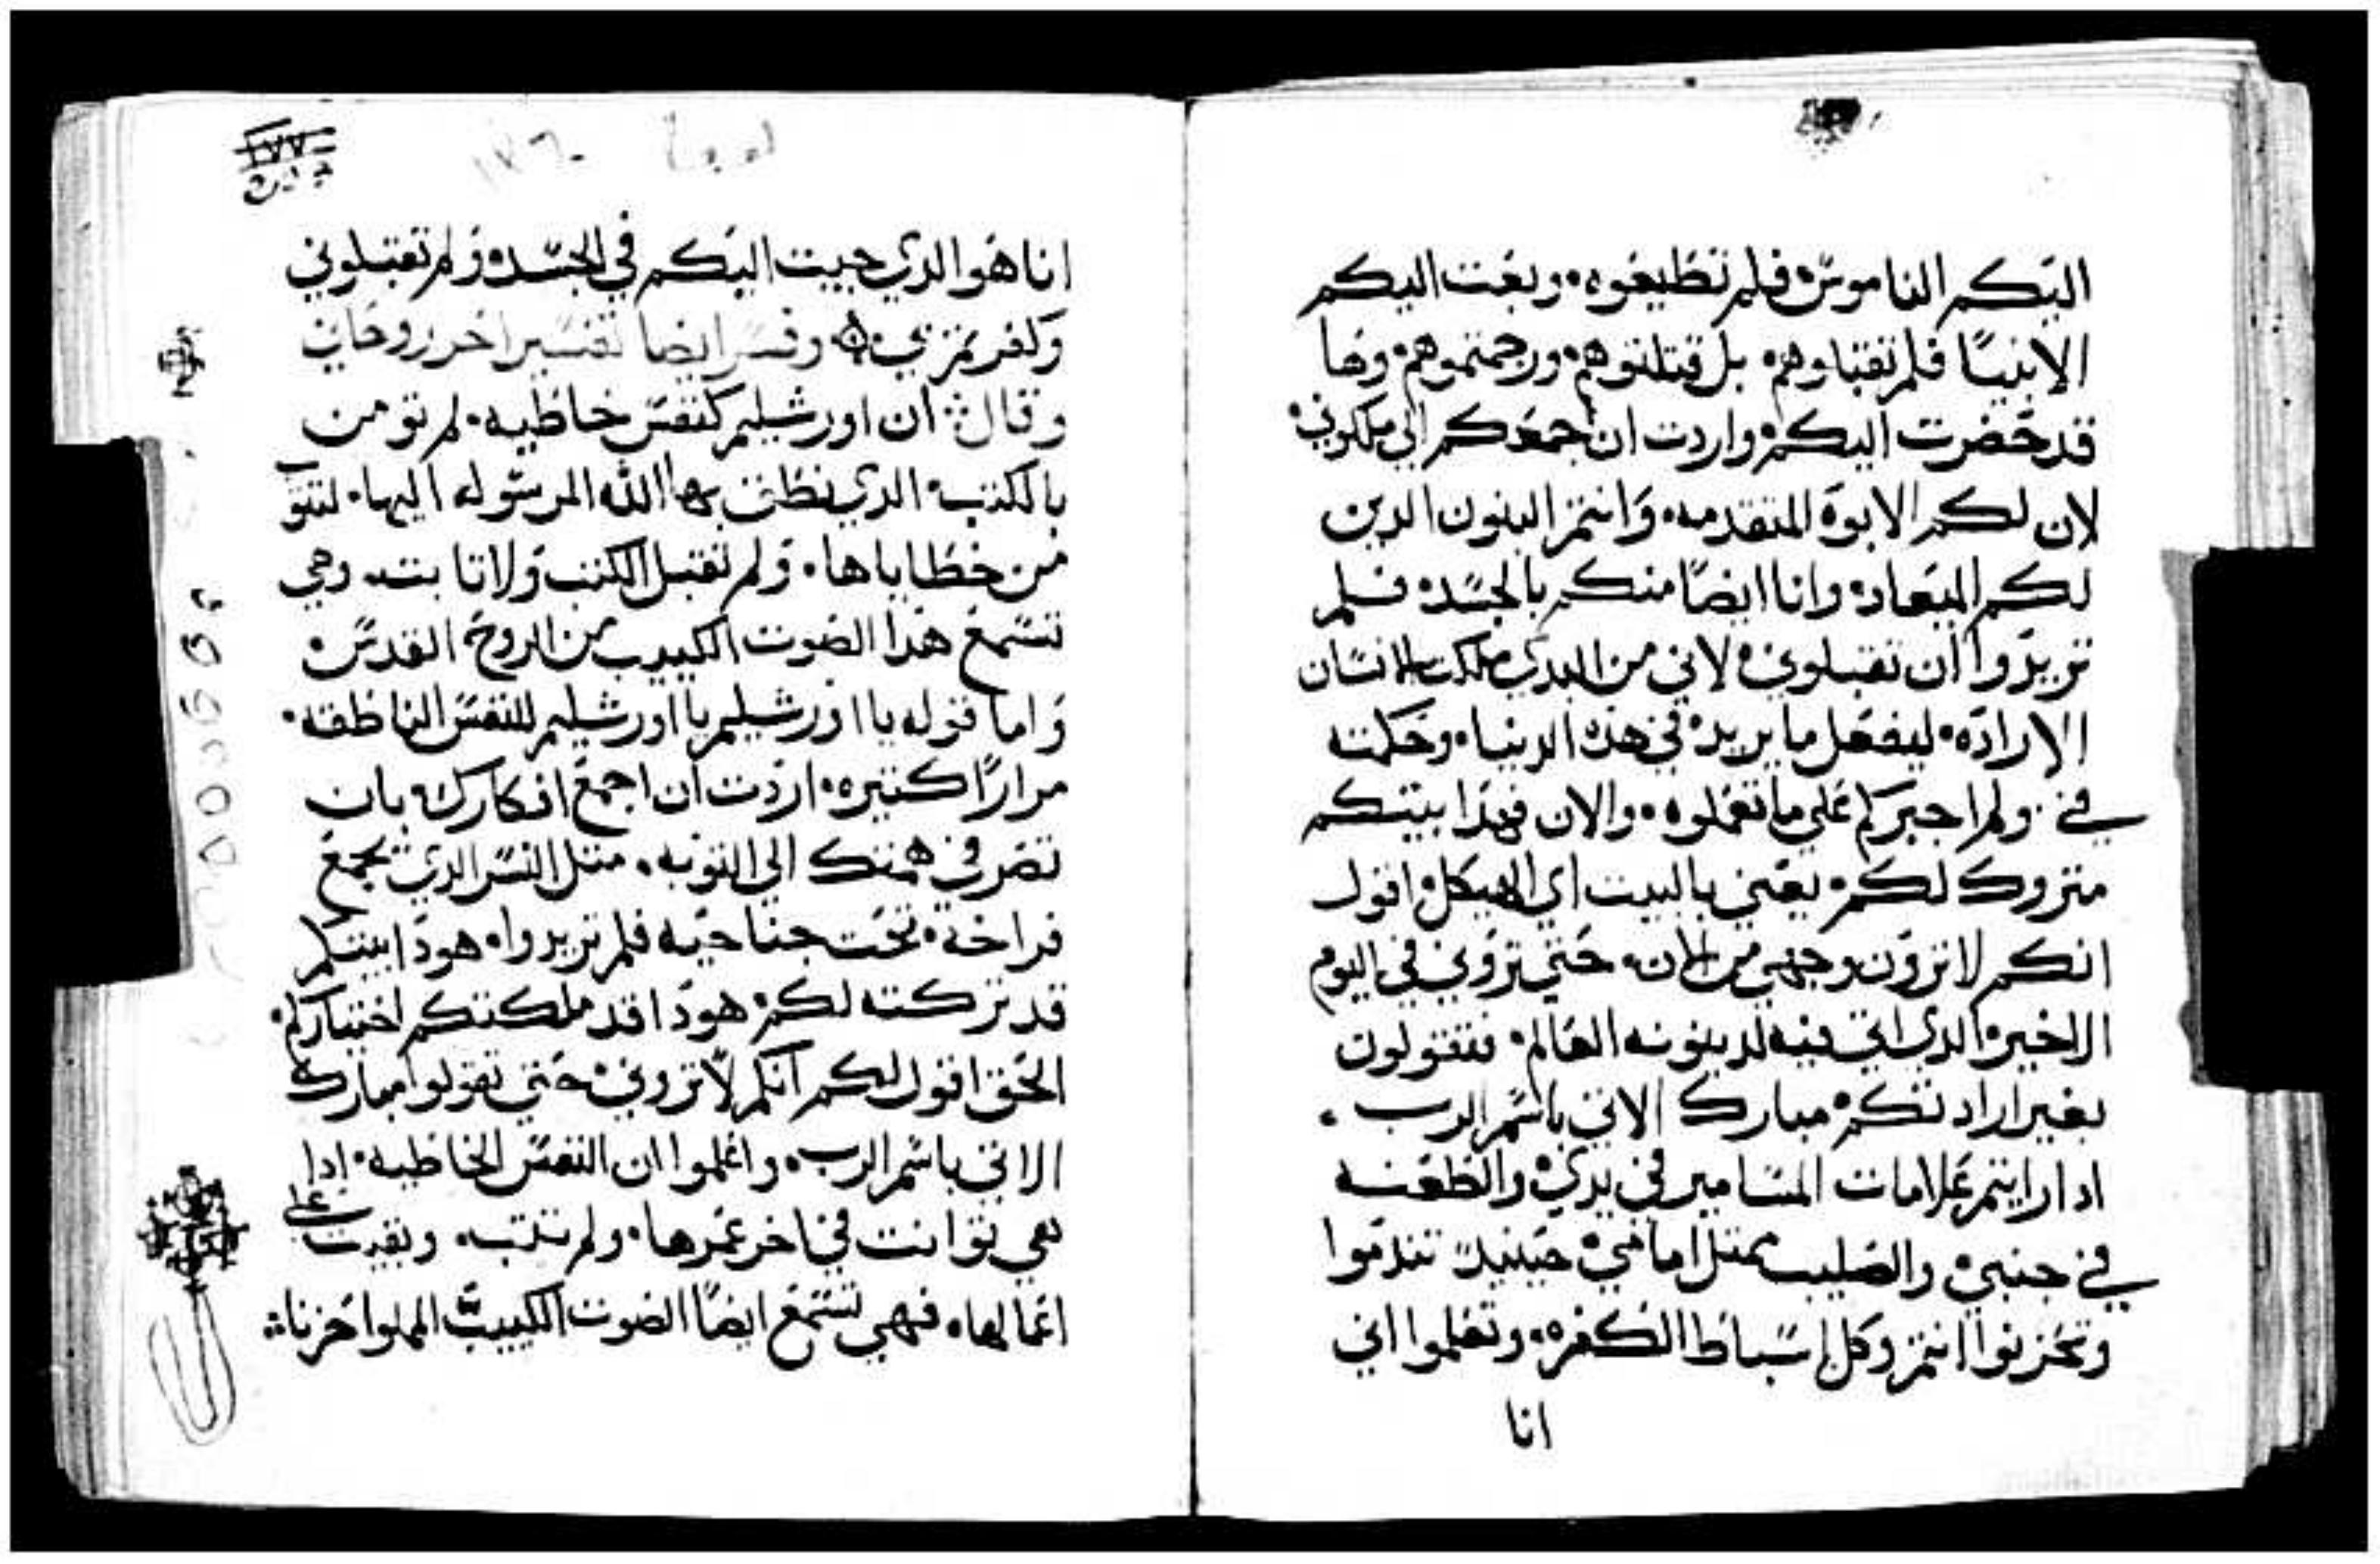 اليكم الناموس فلم تطيعوه وبعت اليكم
الانبيا فلم تقبلوهم بل قتلتوهم ورجمتموهم وها
قد حضرت اليكم واردت ان اجمعكم الى ملكوتي
لان لكم الابوه المتقدمه وانتم البنون الدين
لكم الميعاد وانا ايضا منكم بالجسد فلم
تريدوا ان تقبلوني لاني من البدي ملكت الانسان
الاراده ليفعل ما يريد في هذه الدنيا وحكمته
في ولم اجبركم علي ما تعملوه والان فهدا بيتكم
متروك لكم يعني بالبيت اي الهيكل اقول
انكم لا ترون وجهي من الان حتي تروني في اليوم
الاخير الدي اتي فيه لدينونه العالم فتقولون
بغير ارادتكم مبارك الاتي باسم الرب
ادا رايتم علامات المسامير في يدي والطعنه
في جنبي والصليب ممتل امامي حينيد تندموا
وتحزنوا انتم وكل اسباط الكفره وتعلموا اني
انا
١٧٧
انا هوا الدي جيت اليكم في الجسد ولم تقبلوني
وكفرتم بي وفسر ايضا تفسير اخر روحاني
وقال ان اورشليم كنفس خاطيه لم تومن
بالكتب الدي نطق بها الله المرسوله اليها لتتوب
من خطاياها ولم تقبل الكتب ولا تابت وهي
تسمع هدا الصوت الكييب من الروح القدس
واما قوله يا اورشليم يا اورشليم للنفس الناطقه
مرارا كتيره اردت ان اجمع افكارك بان
تصرفي همتك الي التوبه متل النسر الدي يجمع
فراخه تحت جناحيه فلم تريدوا هودا بيتكم
قد تركته لكم هودا قد ملكتكم اختياركم
الحق اقول لكم انكم لا تروني حتي تقولوا مبارك
الاتي باسم الرب واعلموا ان النفس الخاطيه ادا
هي توانت في اخر عمرها ولم تتب وبقيت علي
اعمالها فهي تسمع ايضا الصوت الكييب المملوا حزنا